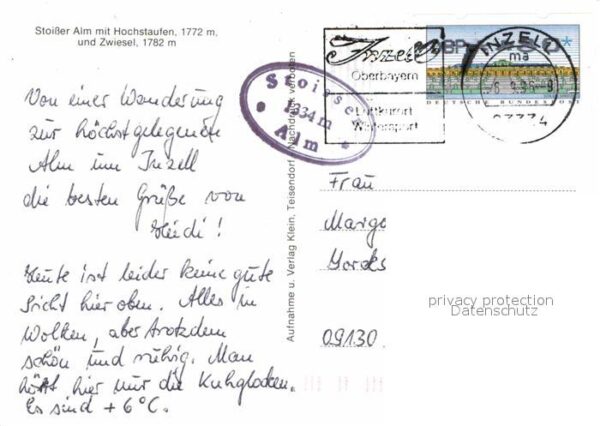 Stoißer Alm mit Hochstaufen, 1772 m,
und Zwiesel, 1782 m
Von einer Wanderung
zur höchstgelegenste
Alm um Inzell
die besten Grüße von
Heidi!
Heute ist leider keine gute
Sicht hier oben. Alles in
Wolken, aber trotzdem
schön und ruhig. Man
hört hier nur die Kuhglocken.
Es sind +6°C.
Stoisser
1334 m
Alm
Aufnahme u. Verlag Klein, Teisendorf Nachdruck verboten
Inzell
Oberbayern
Luftkurort
Wintersport
INZELL
ma
83334
DBP
DEUTSCHE BUNDESPOST
Frau
Margo
09130
privacy protection
Datenschutz